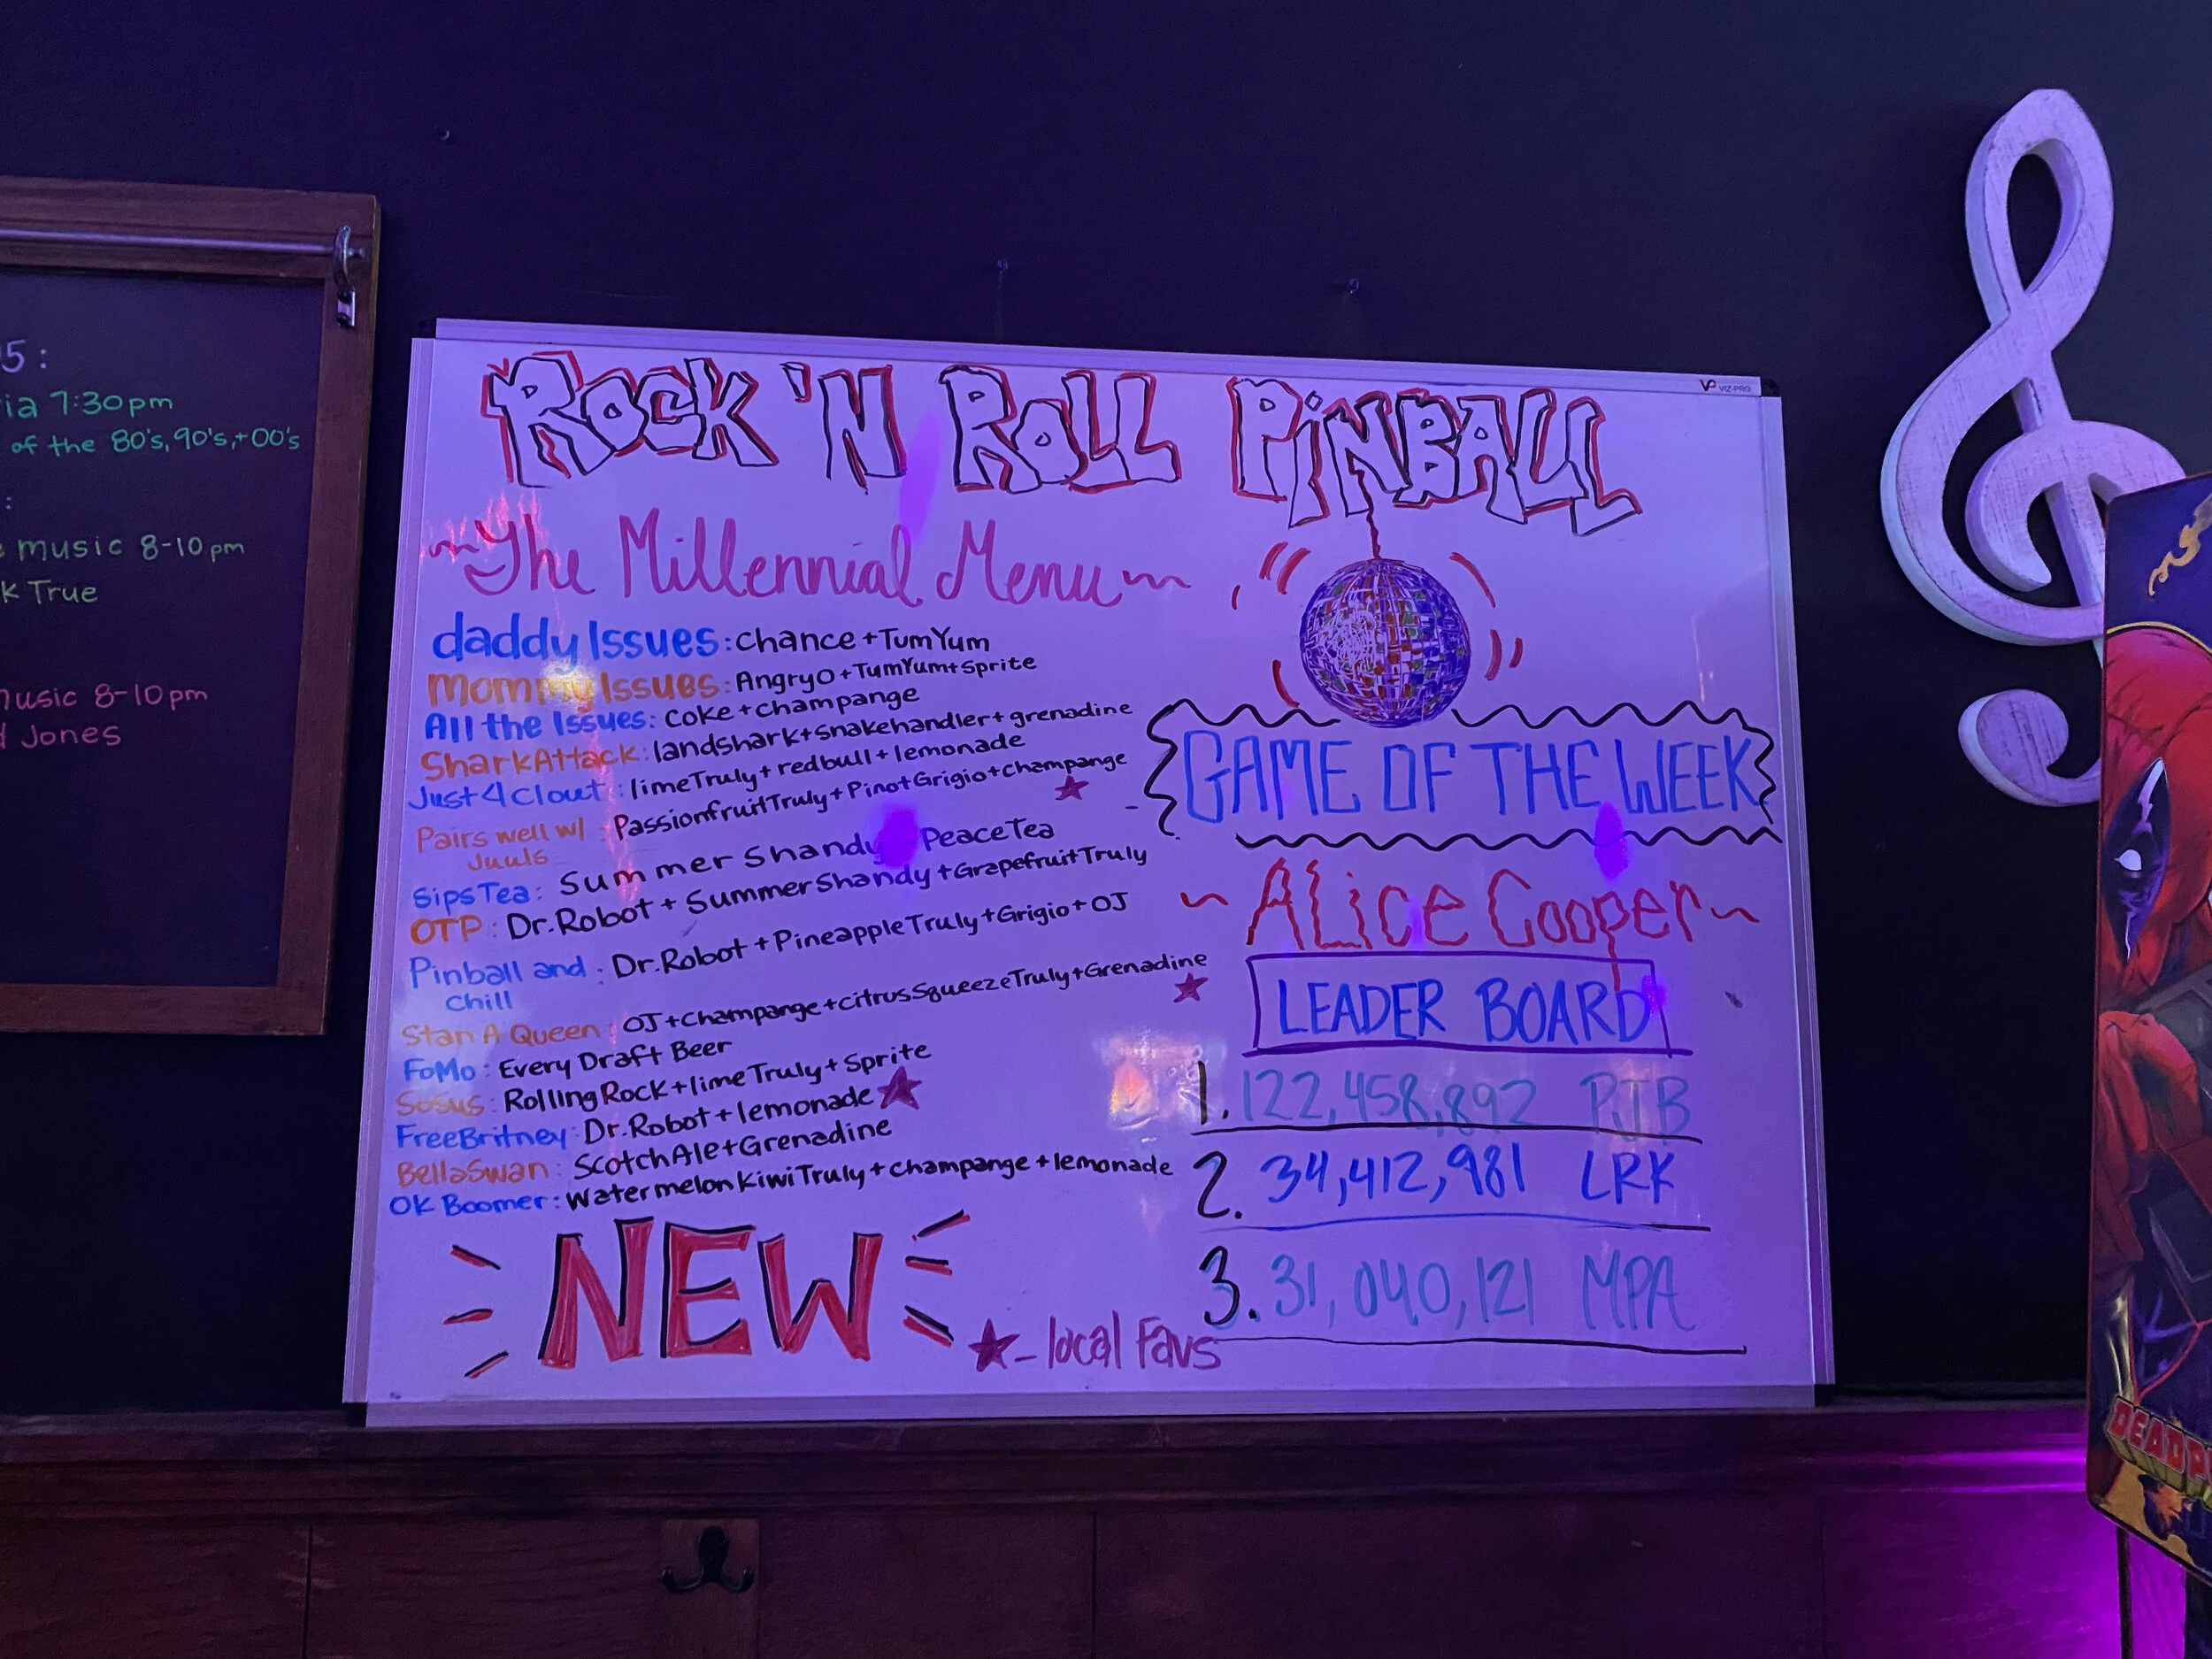 5:
ia 7:30pm
of the 80's, 90's, + 00's
:
music 8-10pm
k True
music 8-10pm
Jones
VIZ-PRO
ROCK 'N ROLL PINBALL
~The Millennial Menu~
daddy Issues: Chance + TumYum
Mommy Issues: AngryO + TumYum + Sprite
All the Issues: Coke + champange
SharkAttack: landshark + snakehandler + grenadine
Just 4 Clout: limeTruly + redbull + lemonade
Pairs well w/ Juuls: PassionfruitTruly + Pinot Grigio + champange ★
SipsTea: Summer Shandy PeaceTea
OTP: Dr.Robot + SummerShandy + GrapefruitTruly
Pinball and Chill: Dr.Robot + PineappleTruly + Grigio + OJ
Stan A Queen: OJ + Champange + citrusSqueezeTruly + Grenadine ★
FoMo: Every Draft Beer
SoSus: RollingRock + limeTruly + Sprite
FreeBritney: Dr.Robot + lemonade ★
BellaSwan: ScotchAle + Grenadine
OK Boomer: WatermelonKiwiTruly + Champange + lemonade
NEW
★ - local Favs
GAME OF THE WEEK
~ALice Cooper~
LEADER BOARD
1. 122,458,892 PJB
2. 34,412,981 LRK
3. 31,040,121 MPA
DEADP